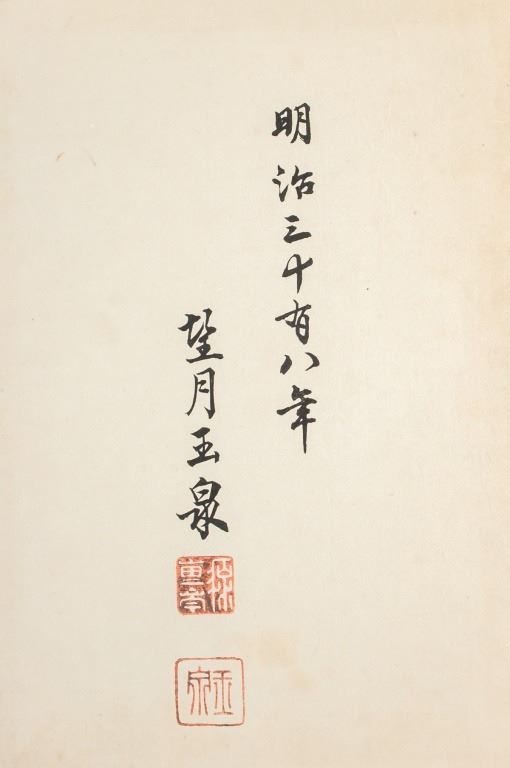 明治三十有八年
望月玉泉
玉泉